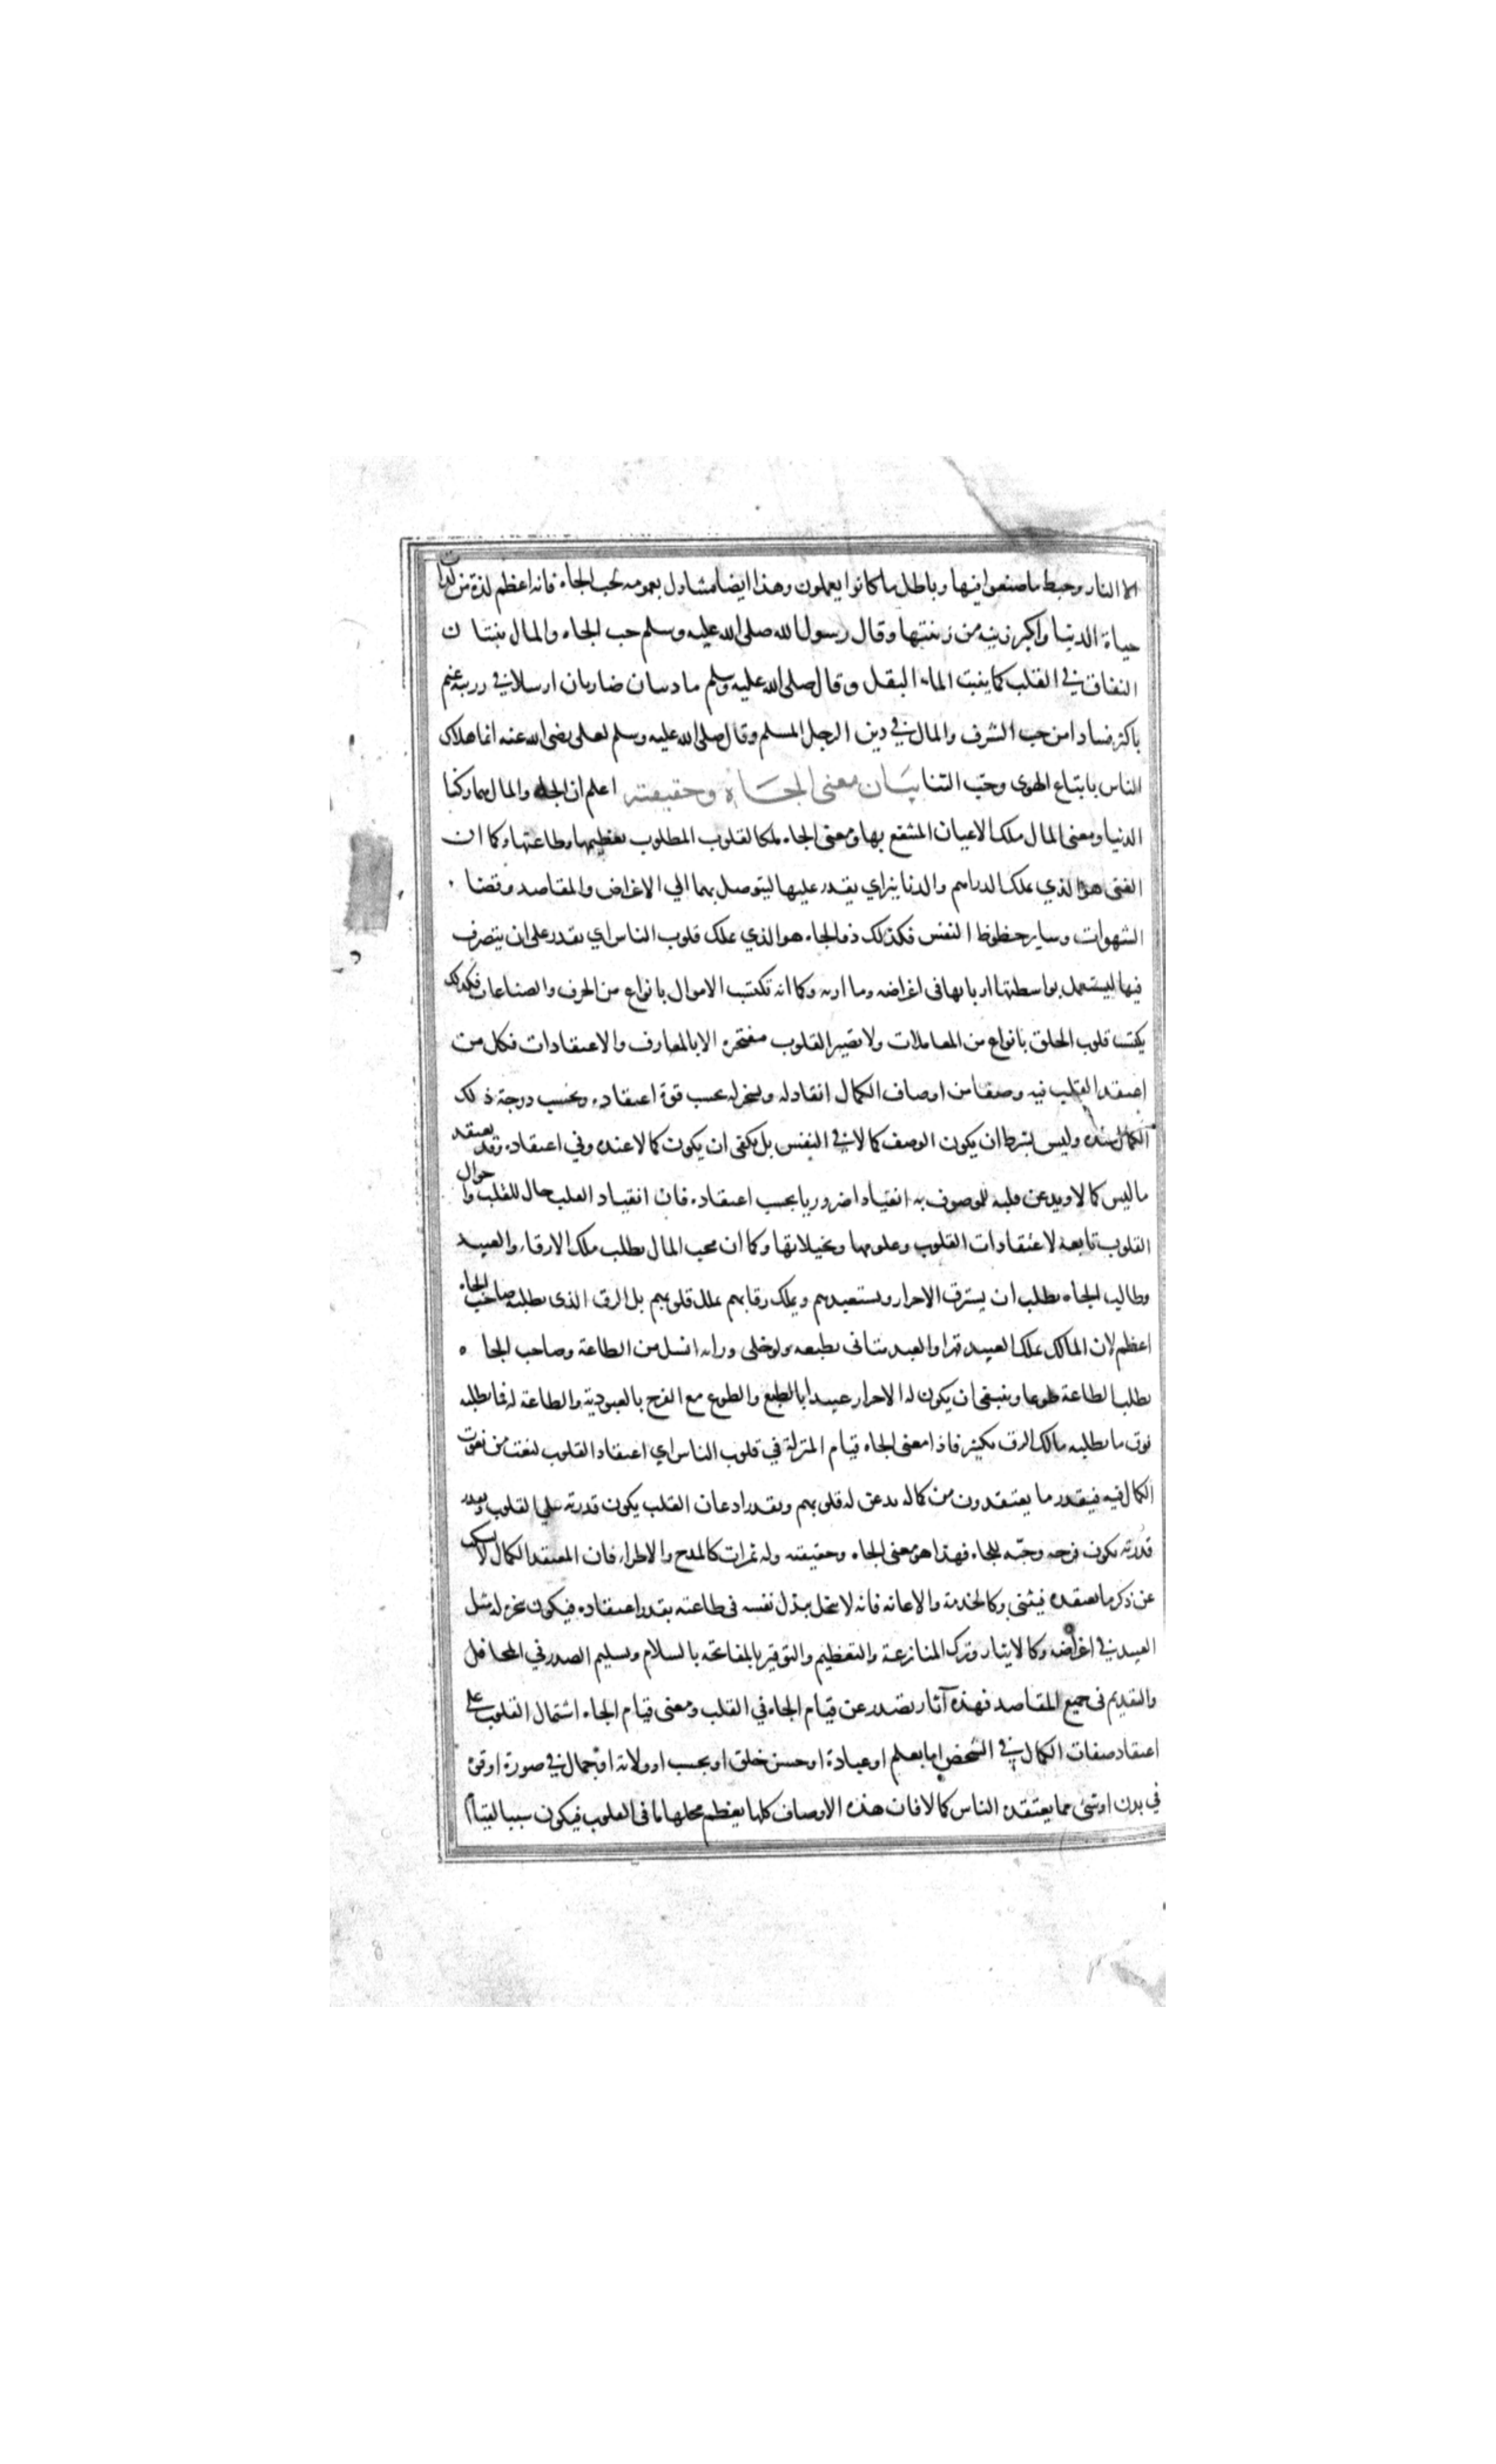 الا النار وحبط ما صنعوا فيها وباطل ما كانوا يعملون وهذا ايضا متناول بعمومه لحب الجاه فانه اعظم لذة من لذات
حياة الدنيا واكبر زينة من زينتها وقال رسول الله صلى الله عليه وسلم حب الجاه والمال ينبتان
النفاق في القلب كما ينبت الماء البقل وقال صلى الله عليه وسلم ما دسان ضاريان ارسلا في زريبة غنم
باكثر فسادا من حب الشرف والمال في دين الرجل المسلم وقال صلى الله عليه وسلم لعلي رضى الله عنه انما هلاك
الناس باتباع الهوى وحب الثنا بيان معنى الجاه وحقيقته اعلم ان الجاه والمال هما ركنا
الدنيا ومعنى المال ملك الاعيان المنتفع بها ومعنى الجاه ملك القلوب المطلوب تعظيمها وطاعتها وكما ان
الغنى هو الذي يملك الدراهم والدنانير اي يقدر عليها ليتوصل بهما الي الاغراض والمقاصد وقضا
الشهوات وساير حظوظ النفس فكذلك ذو الجاه هو الذي يملك قلوب الناس اي يقدر على ان يتصرف
فيها ليستعمل بواسطتها اربابها في اغراضه وماربه وكما انه تكتسب الاموال بانواع من الحرف والصناعات فكذلك
يكتسب قلوب الخلق بانواع من المعاملات ولا تصير القلوب مسخرة الا بالمعارف والاعتقادات فكل من
اعتقد القلب فيه وصفا من اوصاف الكمال انقاد له وتسخر له بحسب قوة اعتقاده وبحسب درجة ذلك
الكمال عنده وليس يشرط ان يكون الوصف كمالا في النفس بل يكفى ان يكون كمالا عنده وفي اعتقاده وقد يعتقد
ما ليس كمالا ويذعن قلبه للموصوف به انقيادا ضروريا بحسب اعتقاده فان انقياد القلب حال للقلب واحوال
القلوب تابعة لاعتقادات القلوب وعلومها وتخيلاتها وكما ان محب المال يطلب ملك الارقاء والعبيد
وطالب الجاه يطلب ان يسترق الاحرار ويستعبدهم ويملك رقابهم بملك قلوبهم بل الرق الذى يطلبه صاحب الجاه
اعظم لان المالك يملك العبيد قهرا والعبد متابى بطبعه ولو خلى ورايه انسل من الطاعة وصاحب الجاه
يطلب الطاعة طوعا وينبغى ان يكون له الاحرار عبيدا بالطبع والطوع مع الفرح بالعبودية والطاعة له فما يطلبه
فوق ما يطلبه مالك الرق بكثير فاذا معنى الجاه قيام المنزلة في قلوب الناس اي اعتقاد القلوب لنعت من نعوت
الكمال فيه فبقدر ما يعتقدون من كماله يذعن له قلوبهم وبقدر اذعان القلب يكون قدرته علي القلوب وبقدر
قدرته يكون فرحه وحبه للجاه فهذا هو معنى الجاه وحقيقته وله ثمرات كالمدح والاطراء فان المعتقد الكمال لا يسكت
عن ذكر ما يعتقده فيثنى وكالخدمة والاعانة فانه لا يبخل ببذل نفسه في طاعته بقدر اعتقاده فيكون سخرة له مثل
العبيد في اغراضه وكالايثار وترك المنازعة والتعظيم والتوقير بالمفاتحة بالسلام وتسليم الصدر في المحافل
والتقديم في جميع المقاصد فهذه آثار تصدر عن قيام الجاه في القلب ومعنى قيام الجاه اشتمال القلوب على
اعتقاد صفات الكمال في الشخص اما بعلم او عبادة او حسن خلق او بحسب او ولاية او جمال في صورة او قوة
في بدن او شئ مما يعتقده الناس كمالا فان هذه الاوصاف كلها يعظم محلها في القلوب فيكون سببا لقيام